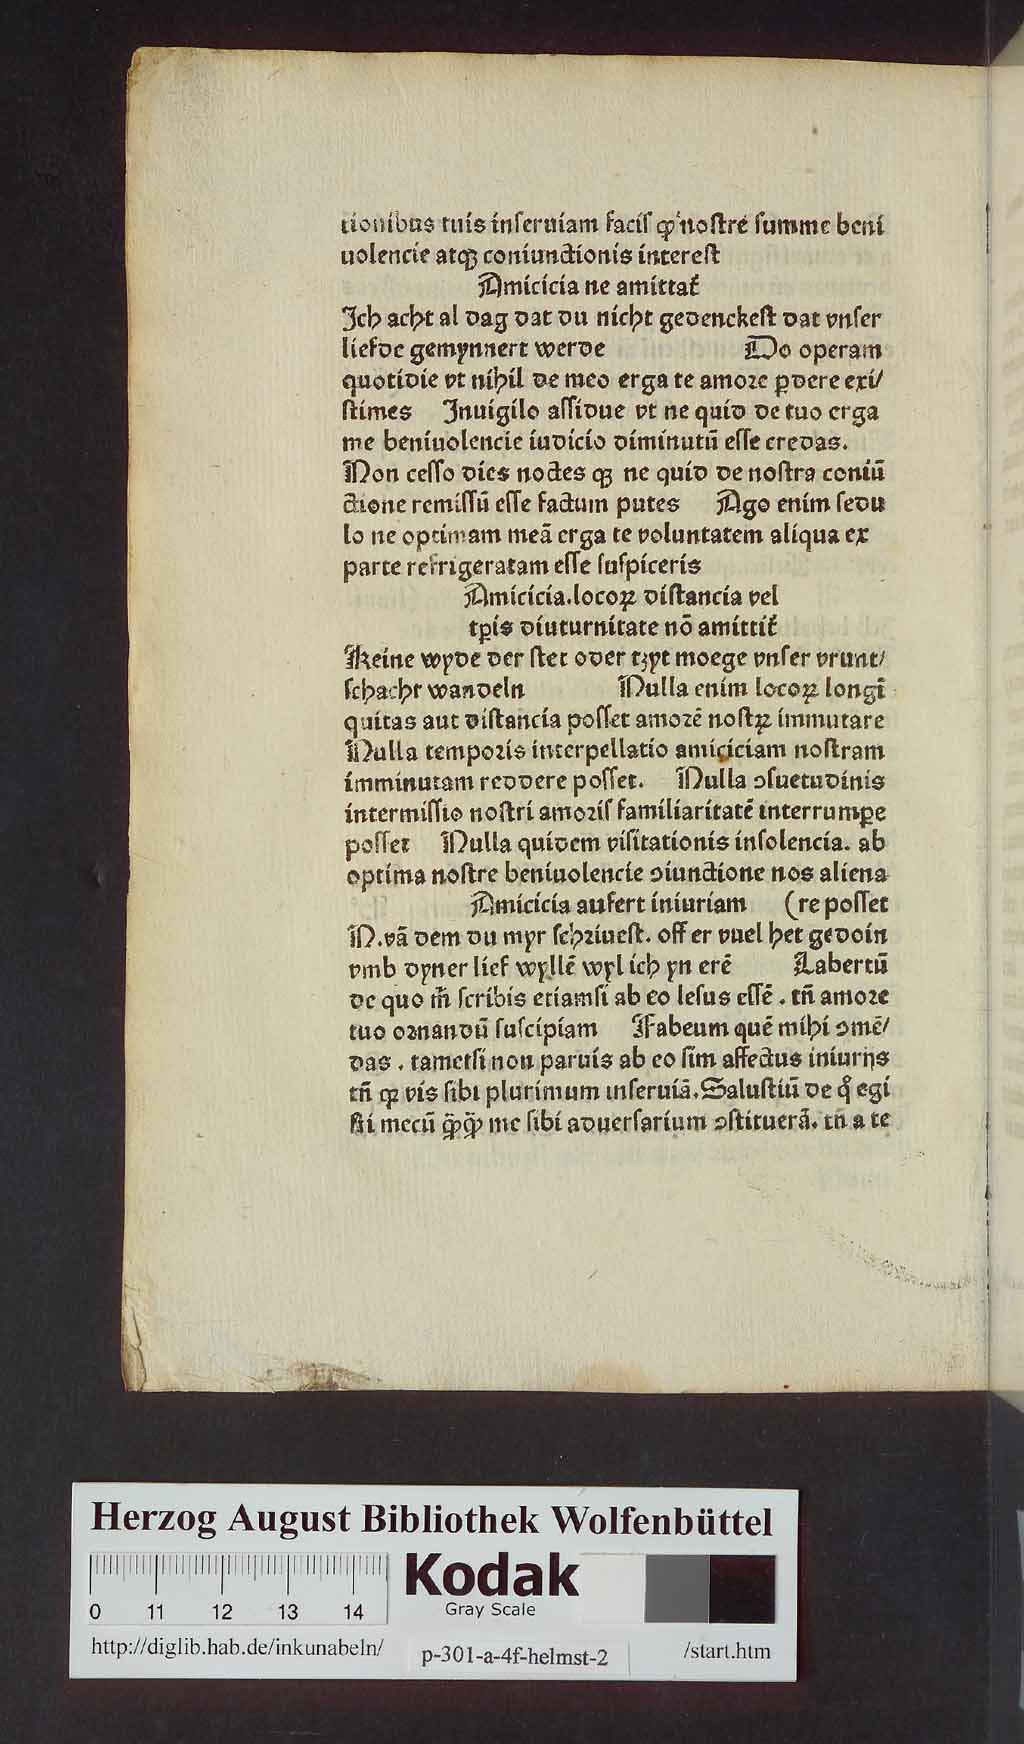 tionibus tuis inseruiam facis ꝙ nostre summe beni
uolencie atqꝫ coniunctionis interest
Amicicia ne amittat᷑
Jch acht al dag dat du nicht gedenckest dat vnser
liefde gemynnert werde Do operam
quotidie vt nihil de meo erga te amore ꝑdere exi/
stimes Jnuigilo assidue vt ne quid de tuo erga
me beniuolencie iudicio diminutū esse credas.
Non cesso dies noctes qꝫ ne quid de nostra coniū
ctione remissū esse factum putes Ago enim sedu
lo ne optimam meā erga te voluntatem aliqua ex
parte refrigeratam esse suspiceris
Amicicia.locoꝝ distancia vel
tꝑis diuturnitate nō amittit᷑
Keine wyde der stet oder tzyt moege vnser vrunt/
schacht wandeln Nulla enim locoꝝ longī
quitas aut distancia posset amorē nostꝝ immutare
Nulla temporis interpellatio amiciciam nostram
imminutam reddere posset. Nulla ꝯsuetudinis
intermissio nostri amoris familiaritatē interrumꝑe
posset Nulla quidem visitationis insolencia. ab
optima nostre beniuolencie ꝯiunctione nos aliena
Amicicia aufert iniuriam (re posset
N.vā dem du myr schriuest. off er vuel het gedoin
vmb dyner lief wyllē wyl ich yn erē Labertū
de quo m̄ scribis etiamsi ab eo lesus essē . tn̄ amore
tuo ornandū suscipiam Fabeum quē mihi ꝯmē/
das . tametsi non paruis ab eo sim affectus iniurijs
tn̄ ꝙ vis sibi plurimum inseruiā. Salustiū de qͦ egi
sti mecū q̄ꝙ me sibi aduersarium ꝯstituerā. tn̄ a te
Herzog August Bibliothek Wolfenbüttel
Kodak
Gray Scale
0 11 12 13 14
http://diglib.hab.de/inkunabeln/ p-301-a-4f-helmst-2 /start.htm